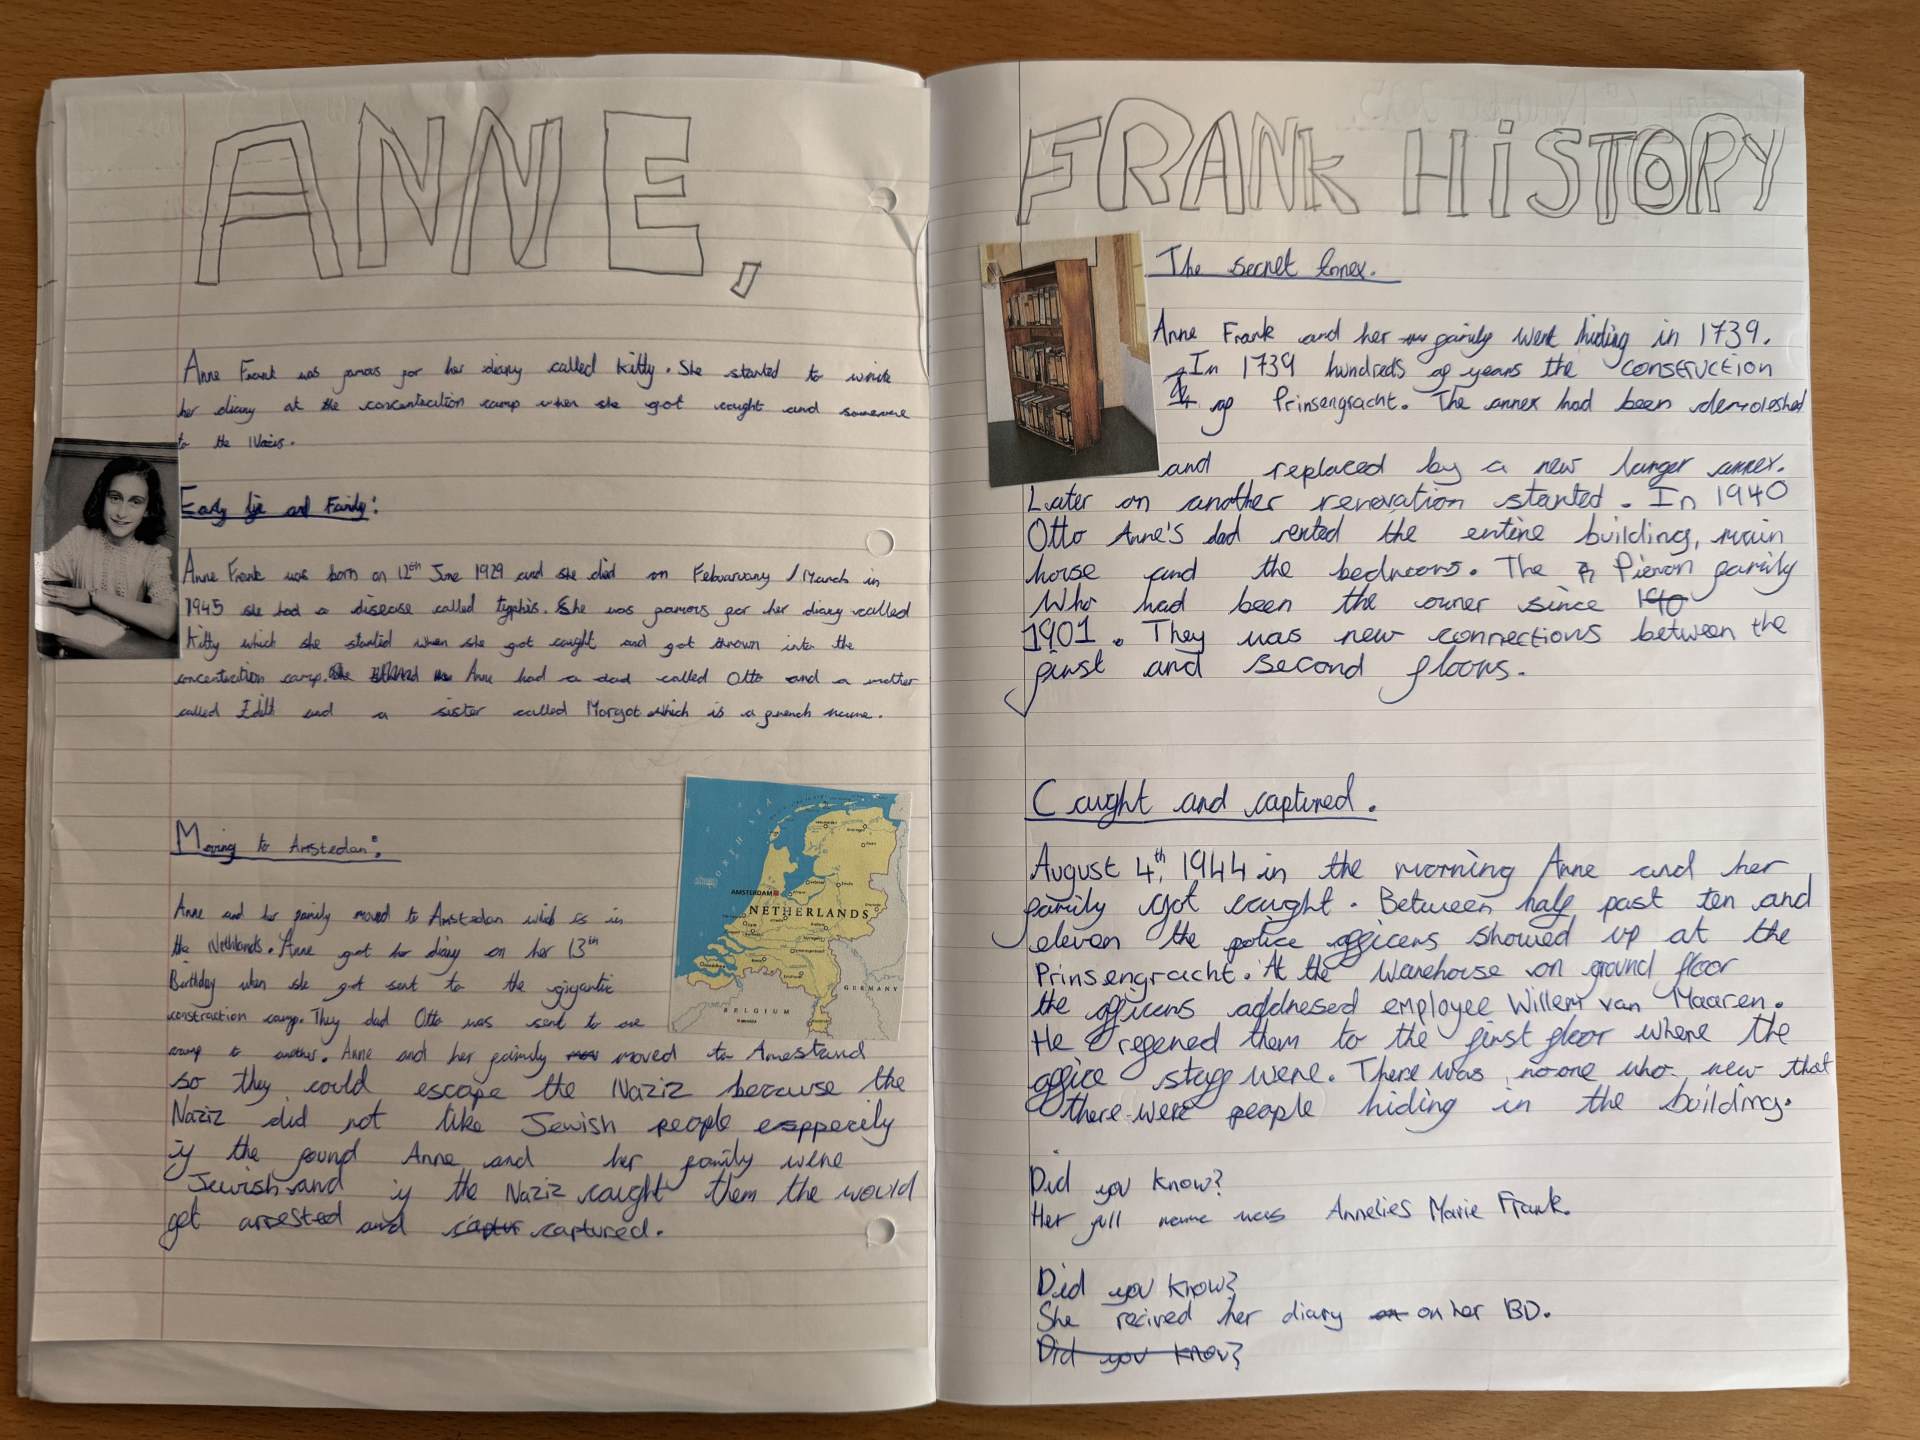 ANNE,
Anne Frank was famous for her diary called Kitty. She started to write
her diary at the concentration camp when she got caught and
to the Nazis.
Early life and Family:
Anne Frank was born on 12th June 1929 and she died on Febuaruary / March in
1945 she had a disease called typphis. She was famous for her diary called
Kitty which she started when she got caught and got thrown into the
concentraction camp. Anne had a dad called Otto and a mother
called Edith and a sister called Margot which is a french name.
Moving to Amstedan:
Anne and her family moved to Amstedan which is in
the Nethlands. Anne got her diary on her 13th
Birthday when she got sent to the gigantic
constraction camp. They dad Otto was sent to one
camp to another. Anne and her family moved to Amestand
so they could escape the Naziz because the
Naziz did not like Jewish people esppecily
if the found Anne and her family were
Jewish and if the Naziz caught them the would
get arrested and captured.
NORTH SEA
AMSTERDAM
NETHERLANDS
BELGIUM
GERMANY
FRANK HiSTORY
The secret Annex.
Anne Frank and her family went hiding in 1739.
In 1739 hundreds of years the construction
of Prinsengracht. The annex had been demoleshed
and replaced by a new larger annex.
Later on another renovation started. In 1940
Otto Anne's dad rented the entire building, main
horse and the bedrooms. The Pieron family
Who had been the owner since 190
1901. They was new connections between the
first and second floors.
Caught and captured.
August 4th, 1944 in the morning Anne and her
family got caught. Between half past ten and
eleven the police officers showed up at the
Prinsengracht. At the Warehouse on ground floor
the officers addresed employee Willem van Maaren.
He refered them to the first floor where the
office staff were. There was no one who new that
there were people hiding in the building.
Did you know?
Her full name was Annelies Marie Frank.
Did you know?
She recived her diary on her BD.
Did you know?